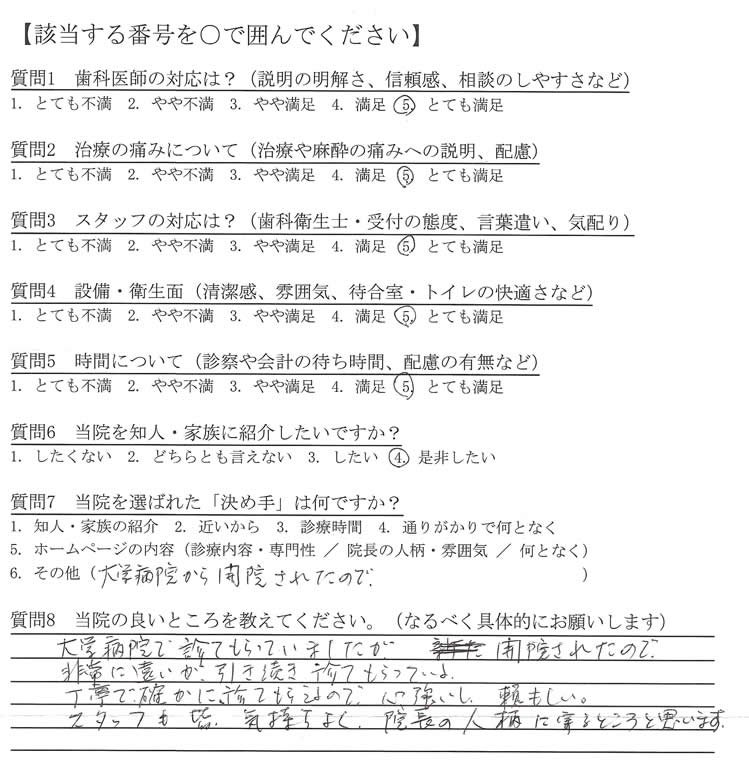 【該当する番号を○で囲んでください】
質問1 歯科医師の対応は?（説明の明解さ、信頼感、相談のしやすさなど）
1. とても不満 2. やや不満 3. やや満足 4. 満足 5. とても満足
質問2 治療の痛みについて（治療や麻酔の痛みへの説明、配慮）
1. とても不満 2. やや不満 3. やや満足 4. 満足 5. とても満足
質問3 スタッフの対応は?（歯科衛生士・受付の態度、言葉遣い、気配り）
1. とても不満 2. やや不満 3. やや満足 4. 満足 5. とても満足
質問4 設備・衛生面（清潔感、雰囲気、待合室・トイレの快適さなど）
1. とても不満 2. やや不満 3. やや満足 4. 満足 5. とても満足
質問5 時間について（診察や会計の待ち時間、配慮の有無など）
1. とても不満 2. やや不満 3. やや満足 4. 満足 5. とても満足
質問6 当院を知人・家族に紹介したいですか?
1. したくない 2. どちらとも言えない 3. したい 4. 是非したい
質問7 当院を選ばれた「決め手」は何ですか?
1. 知人・家族の紹介 2. 近いから 3. 診療時間 4. 通りがかりで何となく
5. ホームページの内容（診療内容・専門性 ／ 院長の人柄・雰囲気 ／ 何となく）
6. その他（大学病院から開院されたので. ）
質問8 当院の良いところを教えてください。（なるべく具体的にお願いします）
大学病院で診てもらっていましたが 開院されたので.
非常に遠いが、引き続き診てもらっている.
丁寧で確かに、診てもらえるので、心強いし、頼もしい。
スタッフも皆、気持ちよく、院長の人柄に寄るところと思います.